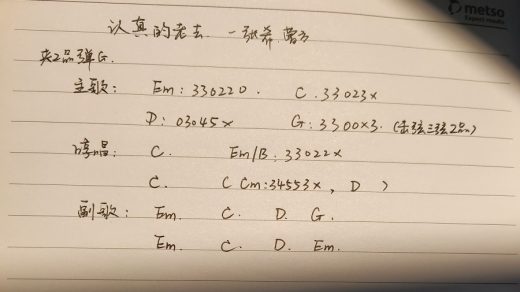 metso
Expert results
认真的老去 一张希 曹方
夹2品弹G.
主歌: Em: 330220. C. 33023x
D: 03045x G: 3300x3. (击弦三弦2品)
哼唱: C. Em/B: 33022x
C. C Cm: 34553x, D )
副歌: Em. C. D. G.
Em. C. D. Em.